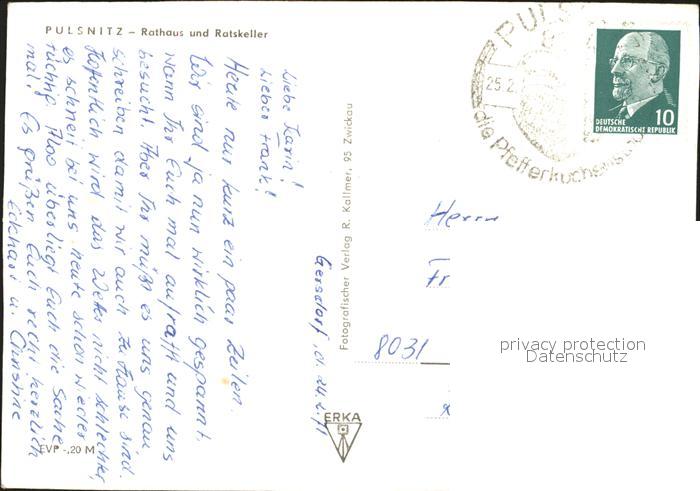 PULSNITZ – Rathaus und Ratskeller
Gersdorf, d. 24.2.71
Liebe Karin!
Lieber Frank!
Heute nur kurz ein paar Zeilen.
Wir sind ja nun wirklich gespannt,
wann Ihr Euch mal aufrafft und uns
besucht. Aber Ihr müßt es uns genau
schreiben damit wir auch zu Hause sind.
Hoffentlich wird das Wetter nicht schlechter,
es schneit bei uns heute schon wieder
tüchtig. Also überlegt Euch die Sache
mal! Es grüßen Euch recht herzlich
Eckhart u. Christine
EVP -,20 M
Fotografischer Verlag R. Kallmer, 95 Zwickau
ERKA
PULS
25.2.
die Pfefferkuchenstadt
10
DEUTSCHE
DEMOKRATISCHE REPUBLIK
Herrn
Fr
8031
privacy protection
Datenschutz